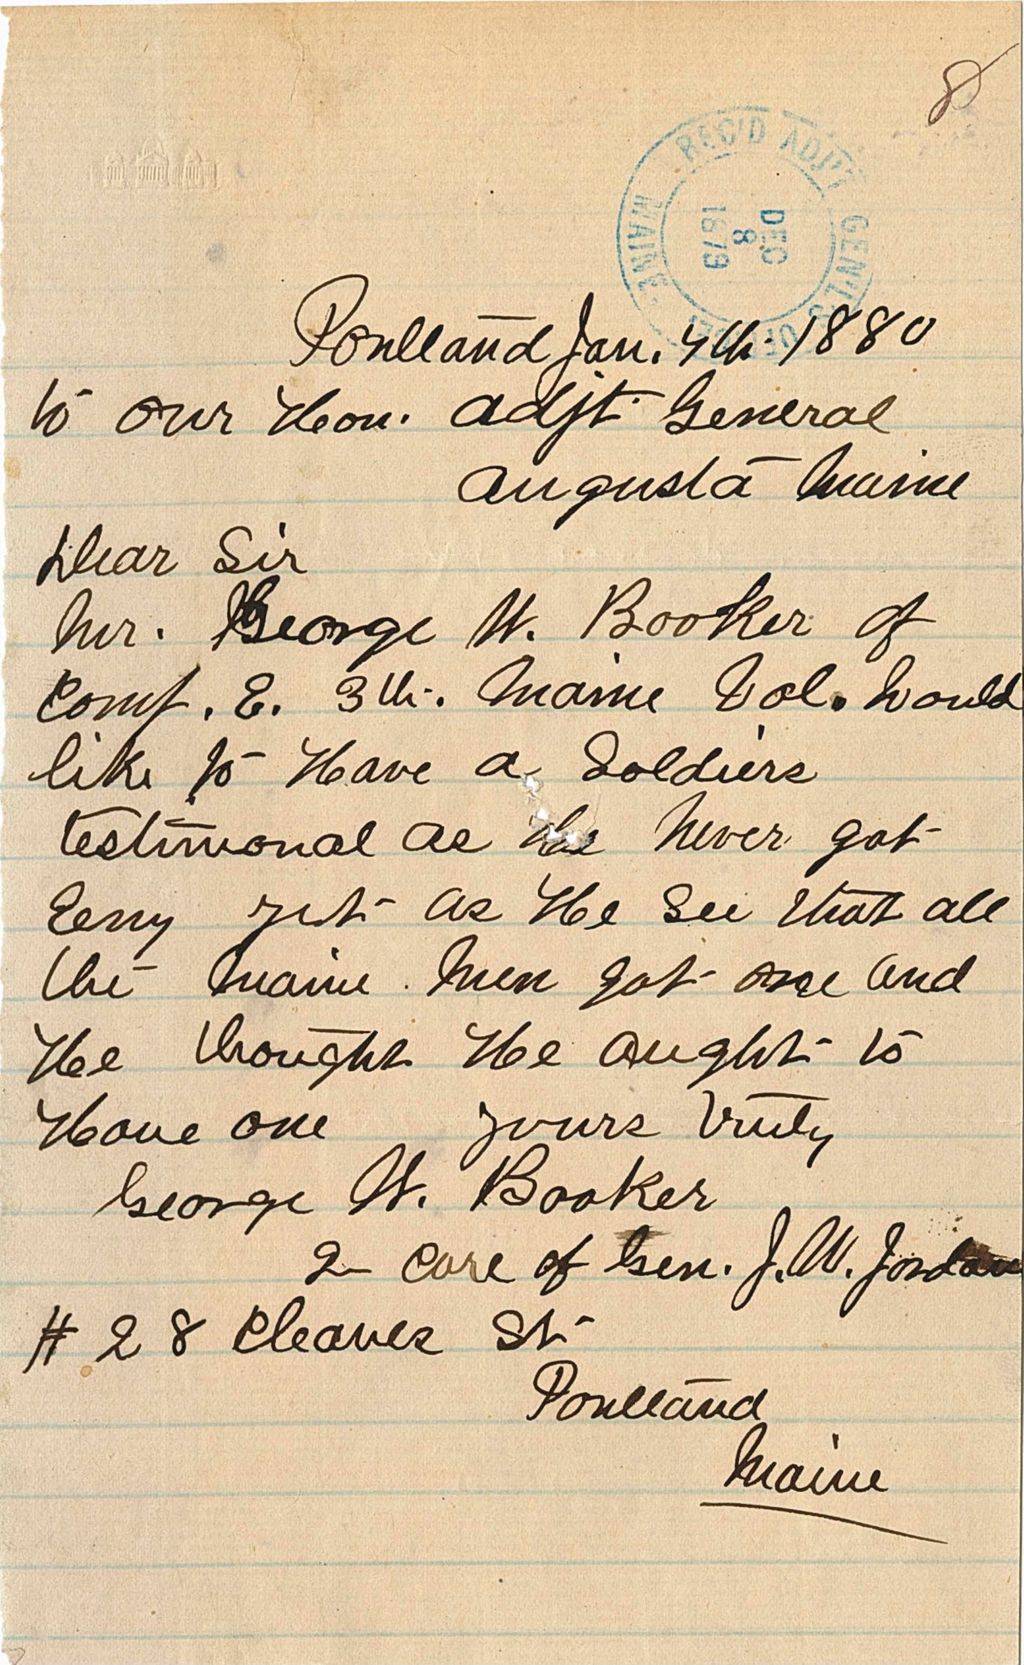 8
REC'D ADJ'T GEN'L'S OFFICE MAINE.
DEC
8
1879
Portland Jan. 7th. 1880
to our Hon. adjt. General
augusta Maine
Dear Sir
Mr. George W. Booker of
Comp. E. 3th. Maine Vol. would
like to Have a Soldiers
testimonal as He Never got
Eeny yet as He See that all
the Maine Men got one and
He thought He aught to
Have one yours truly
George W. Booker
2 Care of Gen. J. W. Jordan
# 28 Cleaves St
Portland
Maine